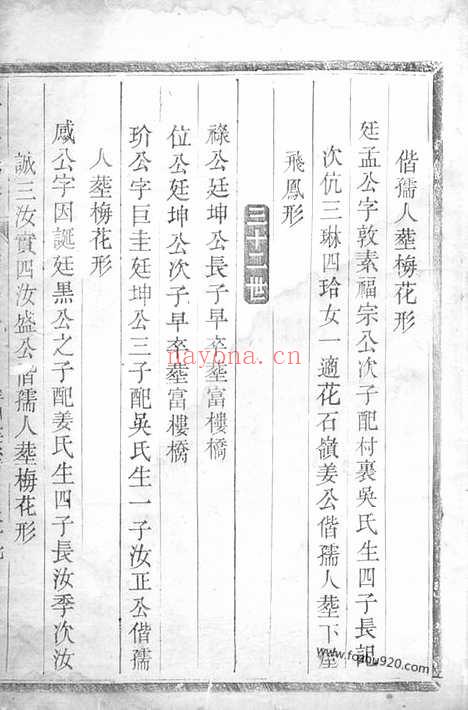 偕孺人塟梅花形
廷孟公字敦素福宗公次子配村裏吳氏生四子長
次伉三琳四玲女一適花石嶺姜公偕孺人塟下
飛鳳形
三十二世
祿公廷坤公長子早卒塟富樓橋
位公廷坤公次子早卒塟富樓橋
玠公字巨圭廷坤公三子配吳氏生一子汝正公偕孺
人塟梅花形
感公字因誕廷黑公之子配姜氏生四子長汝季次汝
誠三汝實四汝盛公偕孺人塟梅花形
nayona.cn